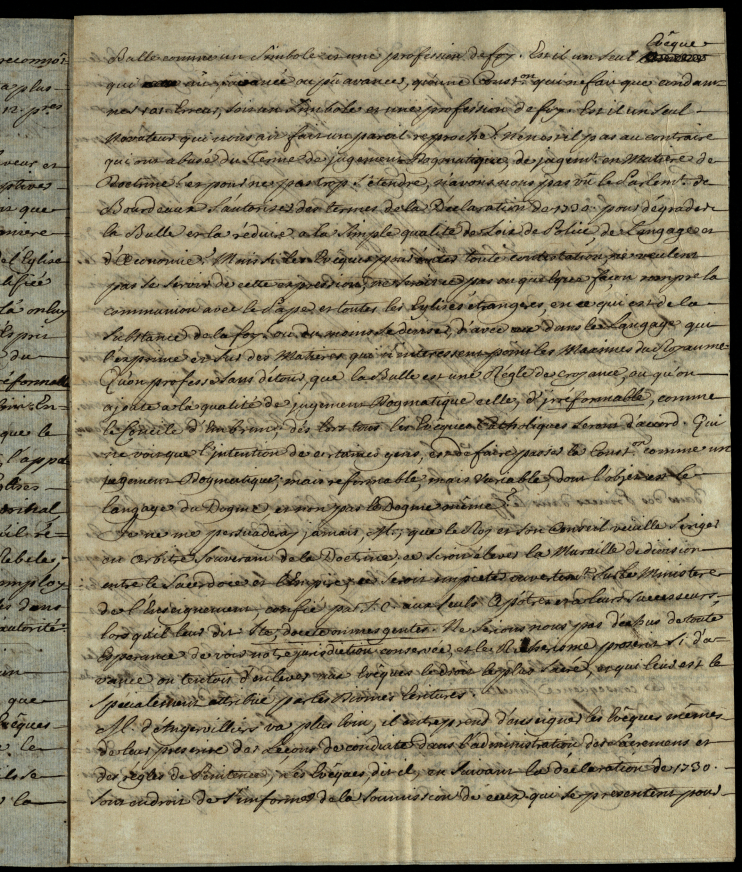 Evêque
Bulle comme un Simbole et une profession de foy. Est il un seul
qui ait avancé ou pû avancer, qu'une Const.on qui ne fait que condam-
ner Erreur, soit un Simbole et une profession de foy. Est il un seul
Novateur qui nous ait fait un pareil reproche? N'en est il pas au contraire
qui ont abusé du terme de jugement Dogmatique, de jugem.t en Matiere de
Doctrine? et pour ne pas trop s'étendre, n'avons nous pas vû le Parlem.t de
Bourdeaux s'autoriser des termes de la Declaration de 1730. pour dégrader
la Bulle et la réduire a la Simple qualité de Loix de Police, de Langage et
d'Œconomie? Mais si les Evêques pour éviter toute contestation ne veulent
pas se servir de cette expression, ne seroit ce pas en quelque façon rompre la
communion avec le Pape et toutes les Eglises étrangeres, en ce qui est de la
Substance de la foy? ou du moins se diviser d'avec eux dans le Langage qui
l'exprime et sur des Matieres qui n'interessent point les Maximes du Royaume
Qu'on professe sans détour, que la Bulle est une Règle de croyance, ou qu'on
ajoute a la qualité de jugement Dogmatique celle, d'irréformable, comme
le Concile d'Embrun, dés lors tous les Evêques Catholiques seront d'accord. Qui
ne voit que l'intention de certaines gens, est de faire passer la Const.on comme un
jugement Dogmatique, mais reformable, mais variable, dont l'objet est le
langage du Dogme et non pas le Dogme même?
Je ne me persuaderay jamais, M., que le Roy et son Conseil veuille s'eriger
en Arbitre Souverain de la Doctrine, ce seroit élever la Muraille de division
entre le Sacerdoce et l'Empire, ce seroit impieter ouvertem.t sur le Ministere
de l'Enseignement, confié par J.C. aux seuls Apôtres et a leurs successeurs,
lorsqu'il leur dit Ite, docete omnes gentes. Ne serions nous pas déchus de toute
Esperance de voir notre jurisdiction conservée, et le Richerisme proscrit si d'a-
vance on tentoit d'enlever aux Evêques le droit le plus Sacré, et qui leur est le
spécialement attribué par les Divines Ecritures.
M. d'Angervilliers va plus loin, il entreprend d'enseigner les Evêques mêmes
de leur prescrire des Leçons de conduite dans l'administration des Sacremens et
des règles de Penitence, "les Evêques, dit il, en suivant la declaration de 1730.
sont en droit de s'informer de la soumission de ceux qui se presentent pour